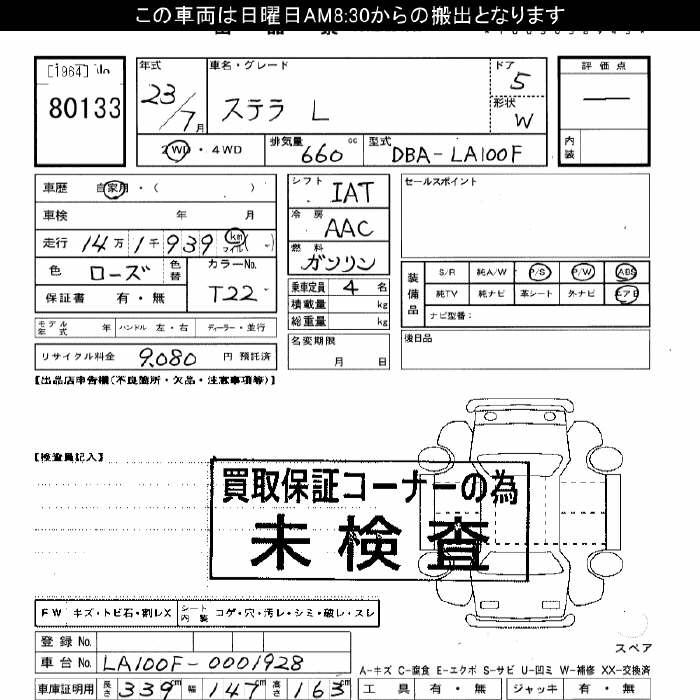 この車両は日曜日AM8:30からの搬出となります
[1964] No
80133
年式 23/7月
車名・グレード ステラ L
ドア 5
形状 W
2WD・4WD
排気量 660 cc
型式 DBA-LA100F
評価点 —
内装
車歴 自家用・( )
車検 年 月
走行 14万1千939 km マイル( )
色 ローズ 色替
カラーNo. T22
保証書 有・無
モデル年式 年 ハンドル 左・右 ディーラー・並行
リサイクル料金 9,080 円 預託済
シフト IAT
冷房 AAC
燃料 ガソリン
乗車定員 4 名
積載量 kg
総重量 kg
名変期限
月 日
セールスポイント
装備品
S/R 純A/W P/S P/W ABS
純TV 純ナビ 革シート 外ナビ エアB
ナビ型番:
後日品
【出品店申告欄(不良箇所・欠品・注意事項等)】
【検査員記入】
買取保証コーナーの為
未検査
FW キズ・トビ石・割レX
シート内装 コゲ・穴・汚レ・シミ・破レ・スレ
登録 No.
車台 No. LA100F-0001928
車庫証明用 長さ 339cm 幅 147cm 高さ 163cm
スペア
A-キズ C-腐食 E-エクボ S-サビ U-凹ミ W-補修 XX-交換済
工具 有・無 ジャッキ 有・無